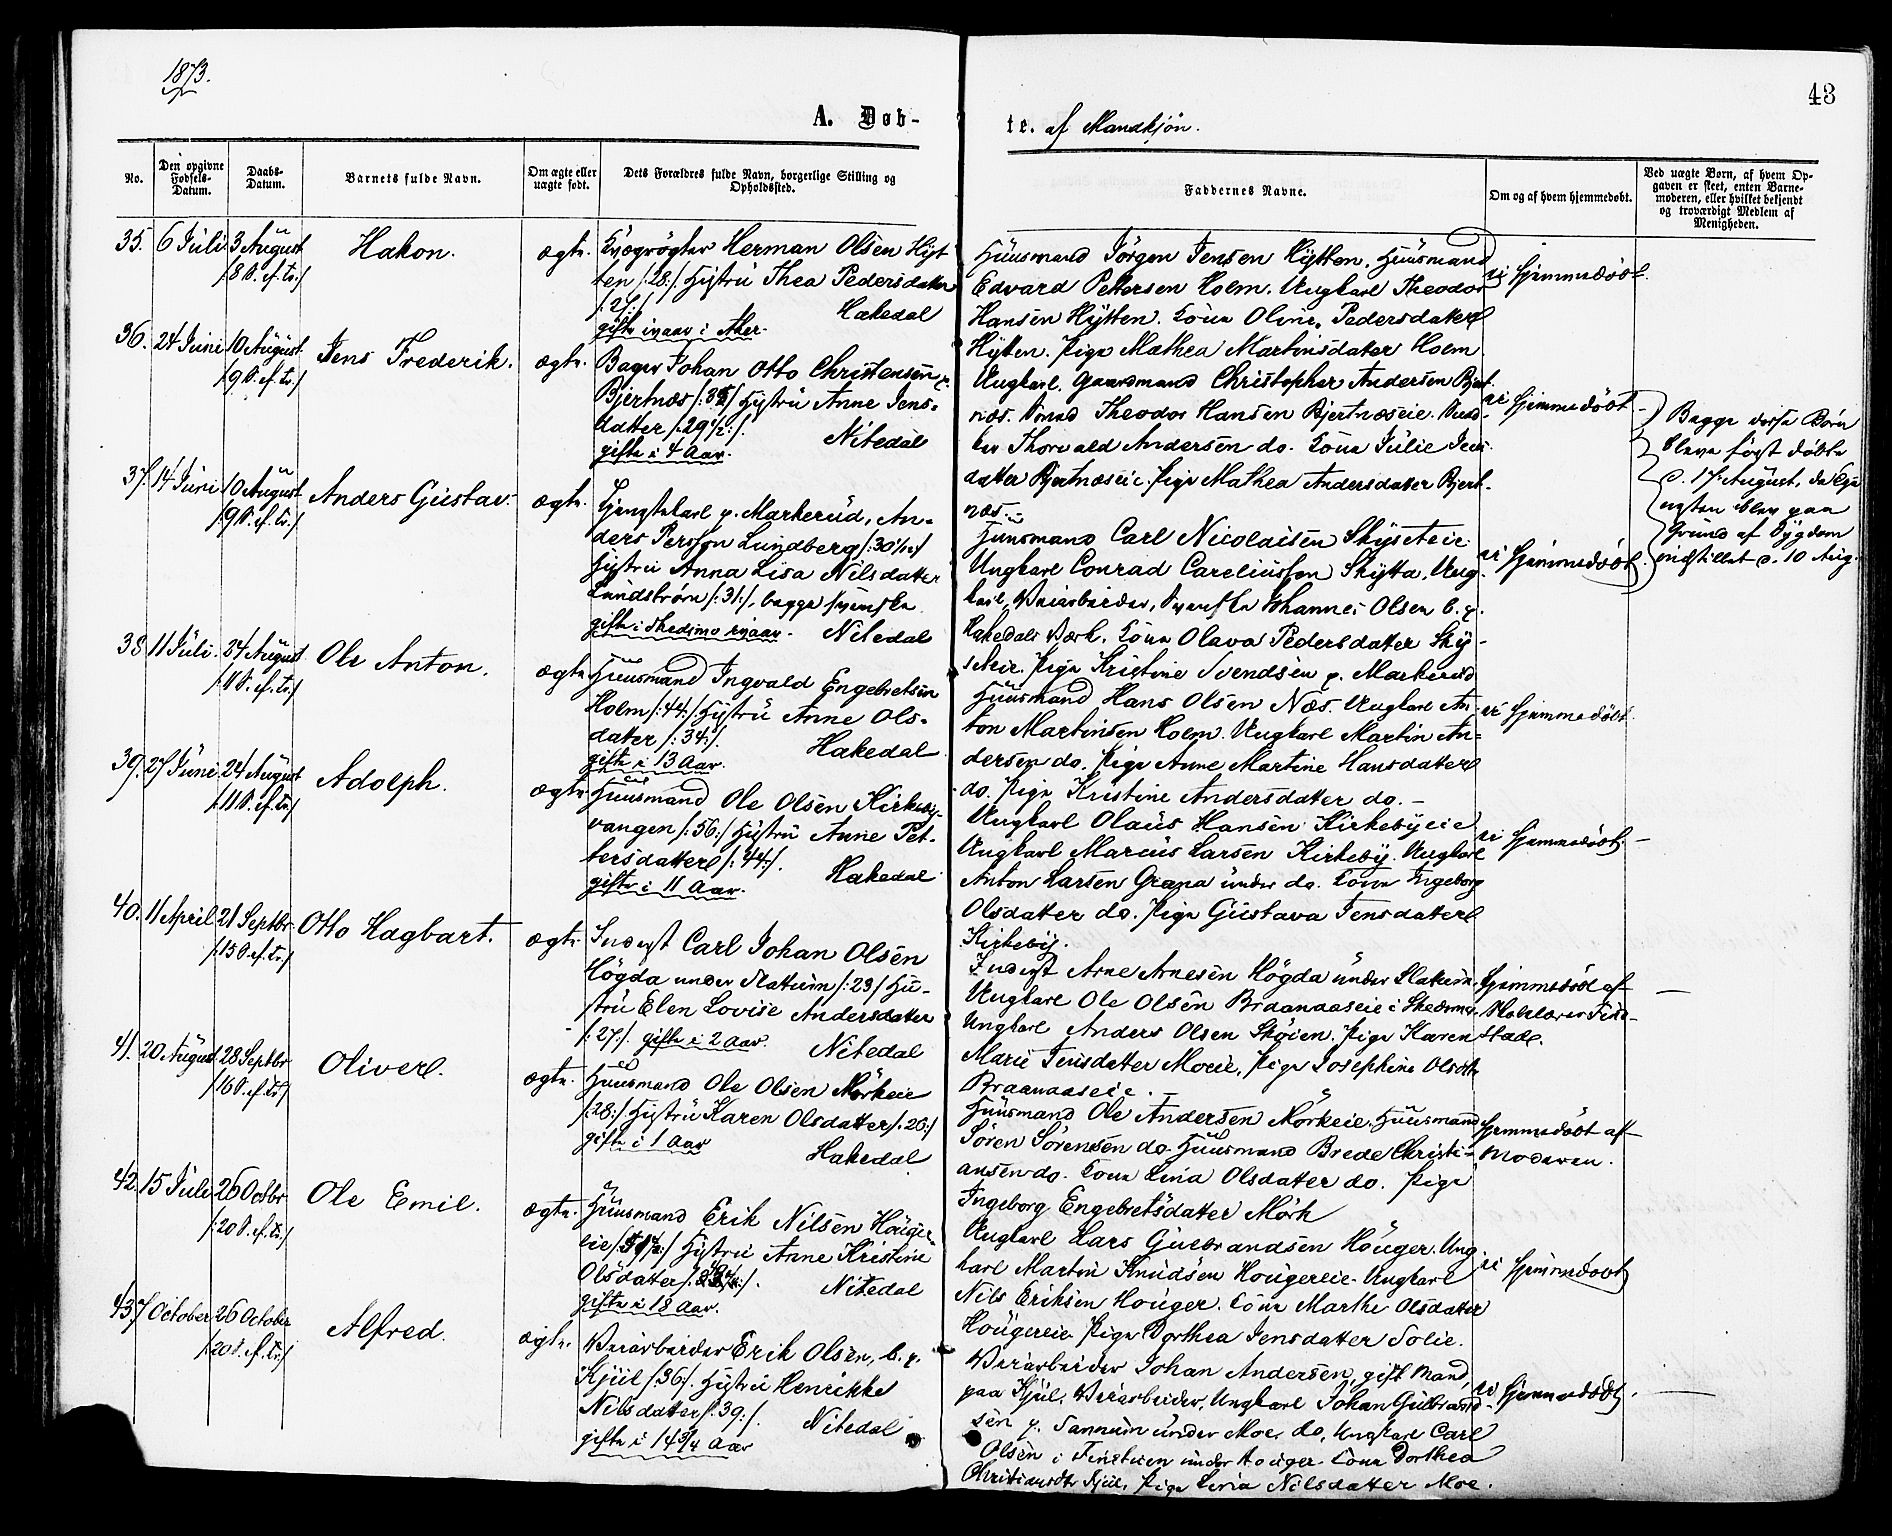 1873.
43
A. Døb-
te. af Mandkjön.
No.
Den opgivne Fødsels-Datum.
Daabs-Datum.
Barnets fulde Navn.
Om ægte eller uægte født.
Dets Forældres fulde Navn, borgerlige Stilling og Opholdssted.
Faddernes Navne.
Om og af hvem hjemmedøbt.
Ved uægte Børn, af hvem Opgaven er skeet, enten Barnemoderen, eller hvilket bekjendt og troværdigt Medlem af Menigheden.
35. 6 Juli 3 August Hakon. ægte.
/: 8 S. ef. Tr:/
Kvægrögter Herman Olsen Hyt
ten /:28:/ Hustru Thea Pedersdatter
/:27:/ Hakedal
gifte ivaar i Aker.
Huusmand Jörgen Jensen Hytten. Huusmand
Edvard Pettersen Holm. Ungkarl Theodor
Hansen Hytten. Kone Oline Pedersdatter
Hytten. Pige Mathea Martinsdatter Holm.
ei hjemmedöbt.
36. 24 Juni 10 August Jens Frederik. ægte.
/:9 S. ef. Tr:/
Bager Johan Otto Christensen
Bjertnæs /:35:/ Hustru Anne Jens-
datter /:29½:/. Nitedal
gifte i 4 Aar.
Ungkarl. Gaardmand Christopher Andersen Bjert-
næs. Smed Theodor Hansen Bjertnæseie.
Thorvald Andersen do. Kone Julie Jens
datter Bjertnæseie. Pige Mathea Andersdatter Bjert-
næs.
ei hjemmedöbt
Begge disse Börn
bleve først døbte
d. 17 August, da
blev paa
Grund af Sygdom
indstillet d. 10 Aug.
37. 14 Juni 10 August Anders Gustav. ægte.
/:9 S. ef. Tr:/
Tjenestekarl p. Markerud, An-
ders Persson Lundberg /:30
Hustru Anna Lisa Nilsdatter
Lundström /:31:/, begge svenske
gifte i Skedsmo ivaar. Nitedal
Huusmand Carl Nicolaisen Skyseteie
Ungkarl Conrad Careliusson Skytta, Ung-
karl, Veiarbeider, Svenske Johannes Olsen b. p.
Hakedals Værk. Kone Olava Pedersdatter Sky-
seteie. Pige Kristine Svendsen p. Markerud
ei hjemmedöbt.
38. 11 Juli. 24 August Ole Anton. ægte
/:11 S. ef. Tr:/
Huusmand Ingvald Engebretsen
Holm /:44:/ Hustru Anne Ols-
dater /:34:/. Hakedal
gifte i 13 Aar.
Huusmand Hans Olsen Næs. Ungkarl An-
ton Martinsen Holm. Ungkarl Martin An-
dersen do. Pige Anne Martine Hansdatter
do. Pige Kristine Andersdatter do.
ei hjemmedöbt.
39. 27 Juni 24 August Adolph. ægte
/:11 S. ef. Tr:/
Huusmand Ole Olsen Kirkeby-
vangen /:56:/ Hustru Anne Pet-
tersdatter /:44:/. Hakedal
gifte i 11 Aar.
Ungkarl Olaus Hansen Kirkebyeie
Ungkarl Marcus Larsen Kirkeby. Ungkarl
Anton Larsen Grana under do. Kone Ingeborg
Olsdatter do. Pige Gustava Jensdatter
Kirkeby.
ei hjemmedöbt.
40. 11 April 21 Septbr Otto Hagbart. ægte
/:15 S. ef. Tr:/
Inderst Carl Johan Olsen
Högda under Slattum /:23:/ Hu-
stru Elen Lovise Andersdatter
/:27:/. gifte i 2 Aar. Nitedal
Inderst Arne Arnesen Högda under Slattum.
Ungkarl Ole Olsen Braanaaseie i Skedsmo.
Ungkarl Anders Olsen Sköien. Pige Karen
Marie Jensdatter Moeie, Pige Josephine Olsdtr
Braanaaseie.
hjemmedöbt af
Skolelærer Find-
stad.
41. 20 August 28 Septbr Oliver. ægte.
/:16 S. ef. Tr:/
Huusmand Ole Olsen Mörkeie
/:28:/ Hustru Karen Olsdatter /:26:/
gifte i 1 Aar Hakedal
Huusmand Ole Andersen Mörkeie. Huusmand
Sören Sörensen do. Huusmand Brede Christi-
ansen do. Kone Lina Olsdatter do. Pige
Ingeborg Engebretsdatter Mörk
hjemmedöbt af
Moderen.
42. 15 Juli 26 Octbr Ole Emil. ægte.
/:20 S. ef. Tr:/
Huusmand Erik Nilsen Houger-
eie Hustru Anne Kristine
Olsdatter Nitedal
gifte i 18 Aar.
Ungkarl Lars Gulbrandsen Houger. Ung-
karl Martin Knudsen Hougereie. Ungkarl
Nils Eriksen Houger. Kone Marthe Olsdatter
Hougereie. Pige Dorthea Jensdatter Solie.
ei hjemmedöbt
43. 7 October 26 October Alfred. ægte.
/:20 S. ef. Tr:/
Veiarbeider Erik Olsen, b. p.
Kjul /:36:/. Hustru Henrikke
Nilsdatter /:39:/. Nitedal
gifte i 14¾ Aar
Veiarbeider Johan Andersen, gift Mand,
paa Kjul, Veiarbeider, Ungkarl Johan Gulbrand-
sen p. Sannum under Moe, do, Ungkarl Carl
Olsen i Finstuen under Houger. Kone Dorthea
Christiansdtr Kjul, Pige Lina Nilsdatter Moe.
ei hjemmedöbt